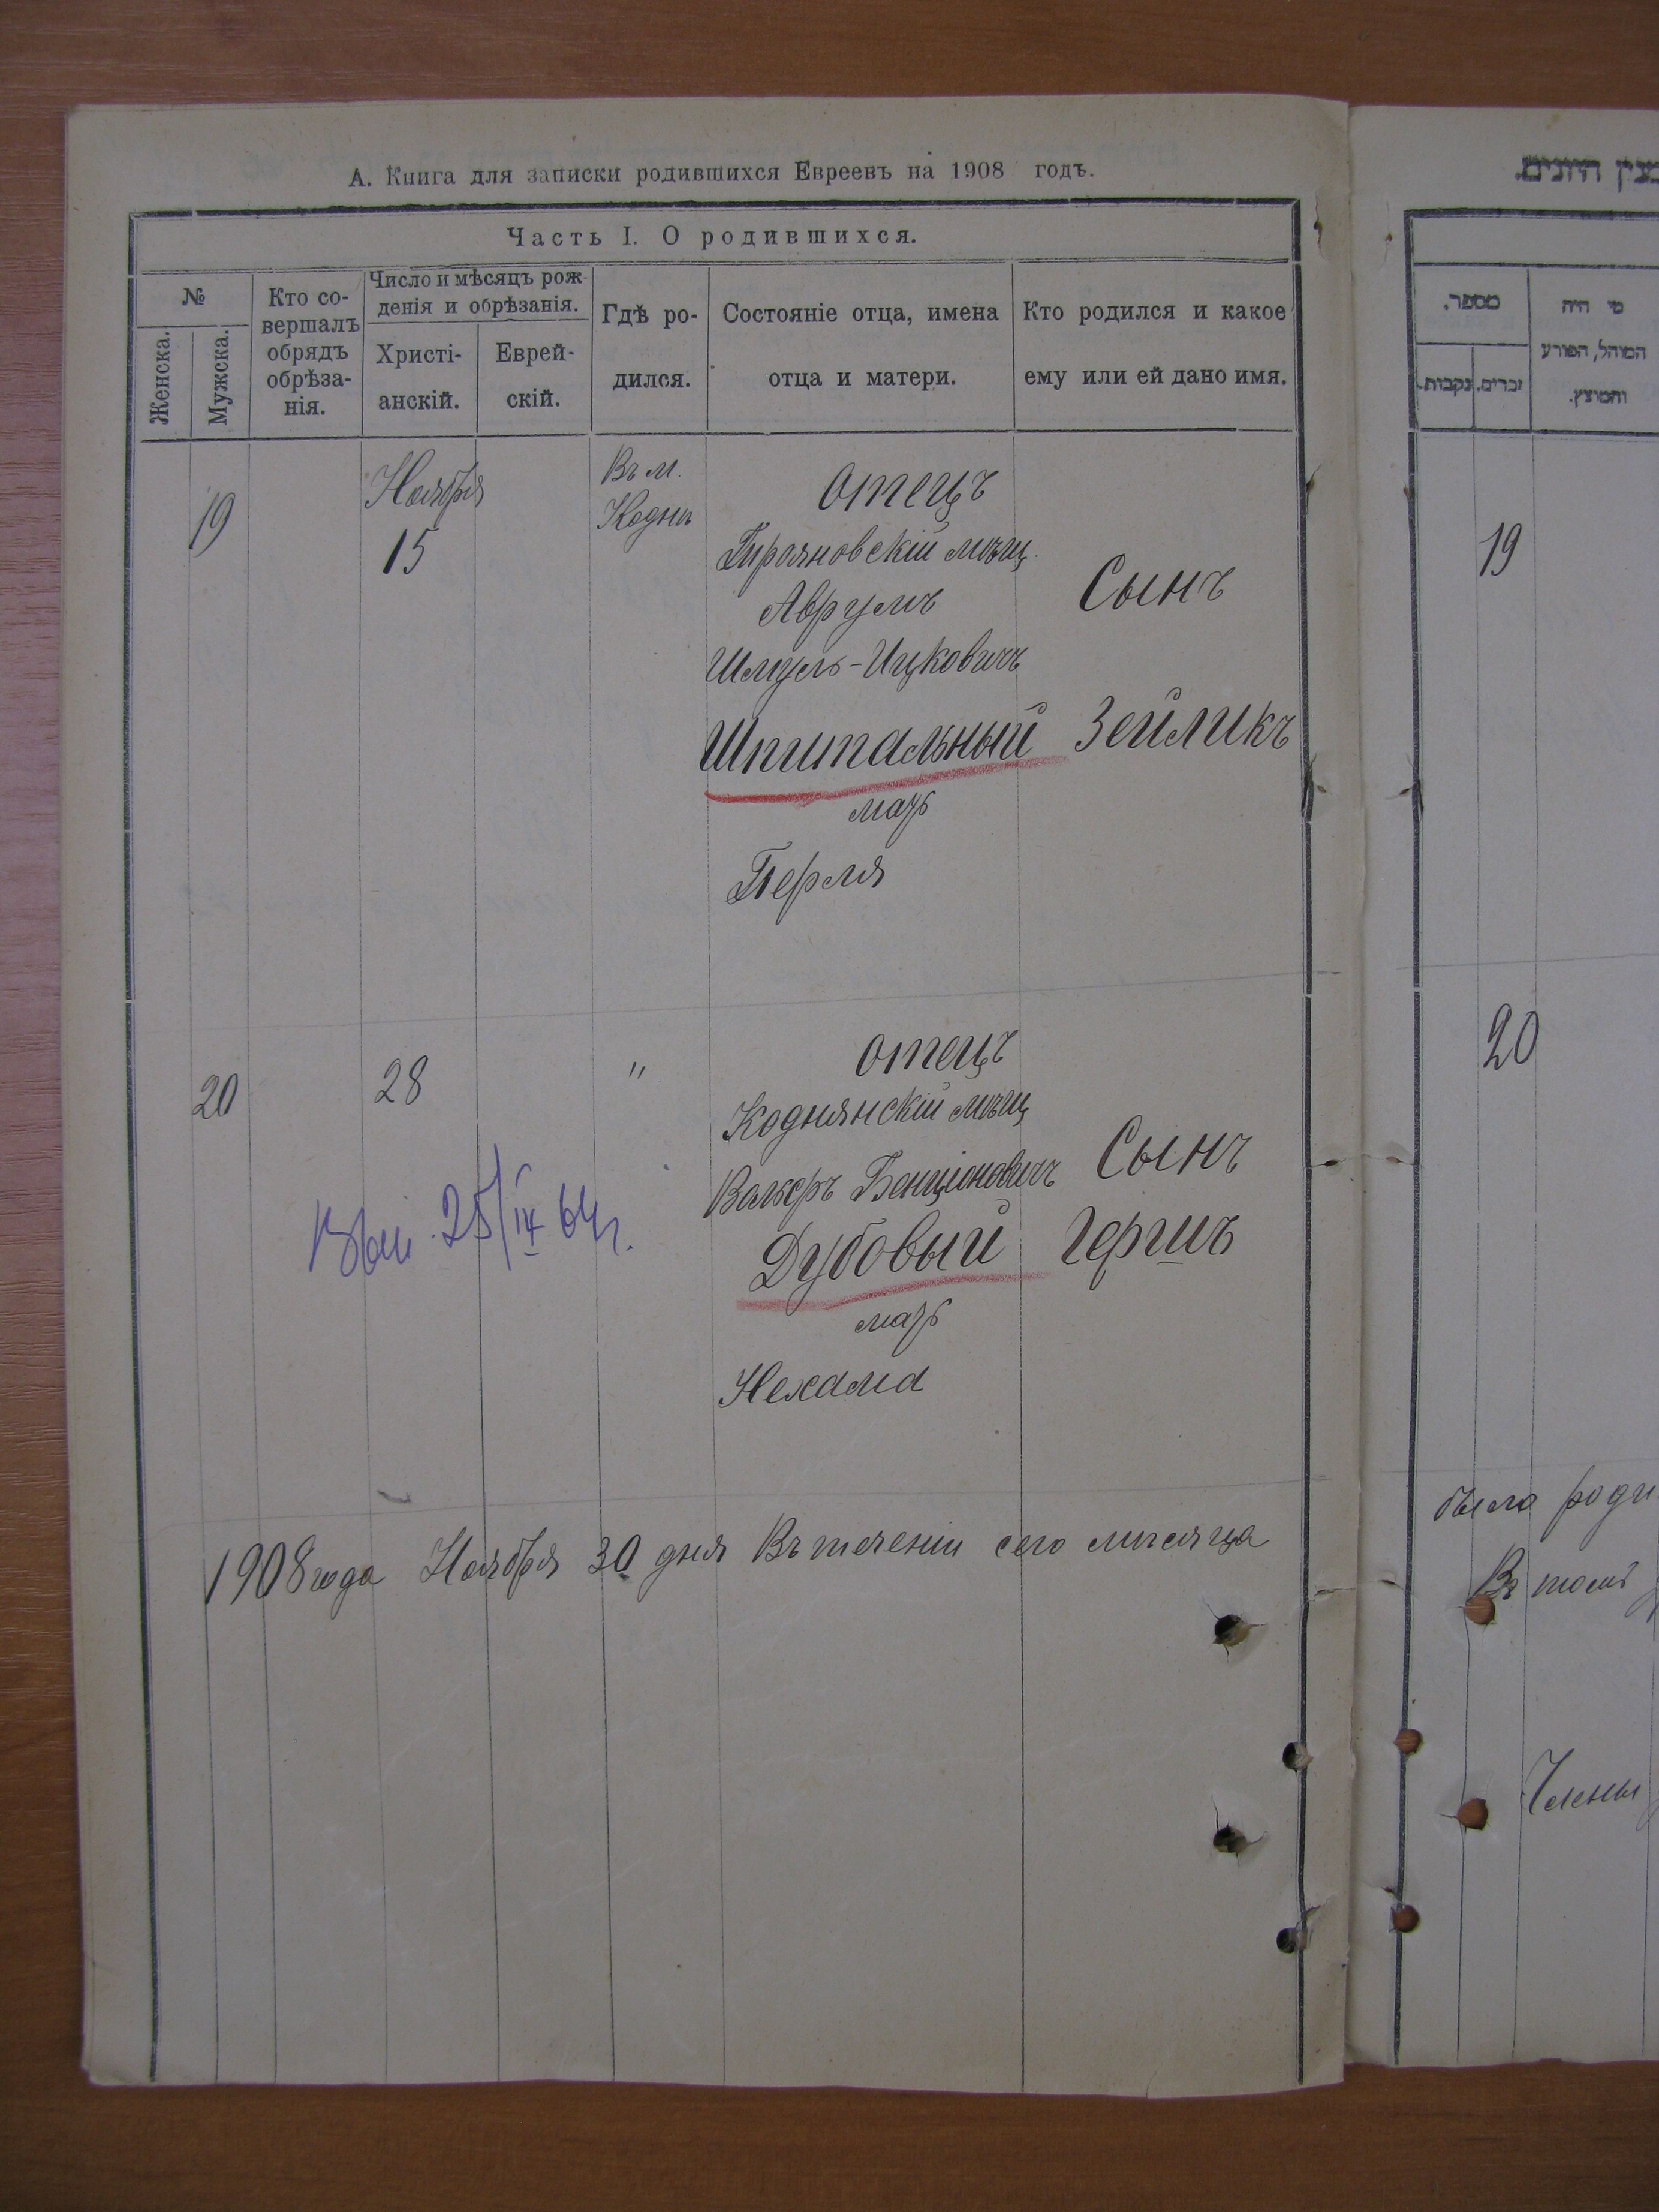 А. Книга для записки родившихся Евреевъ на 1908 годъ.
Часть I. О родившихся.
№
Женска.
Мужска.
Кто со-
вершалъ
обрядъ
обрѣза-
нія.
Число и мѣсяцъ рож-
денія и обрѣзанія.
Христі-
анскій.
Еврей-
скій.
Гдѣ ро-
дился.
Состояніе отца, имена
отца и матери.
Кто родился и какое
ему или ей дано имя.
19
Ноября
15
Въ м.
Кодни
отецъ
мѣщ.
Аврумъ
Шмуль-Ицковичъ
Шпитальный
мать
Перля
Сынъ
Зейликъ
20
28
"
отецъ
Коднянскій мѣщ
Бенціоновичъ
Дубовый
мать
Нехама
Сынъ
Гершъ
25/IV 64г.
1908 года Ноября 30 дня Въ теченіи сего мѣсяца
מספר.
זכרים.
נקבות.
מי היה
המוהל, הפורע
והמוצץ.
19
20
было роди
Въ томъ
Члены